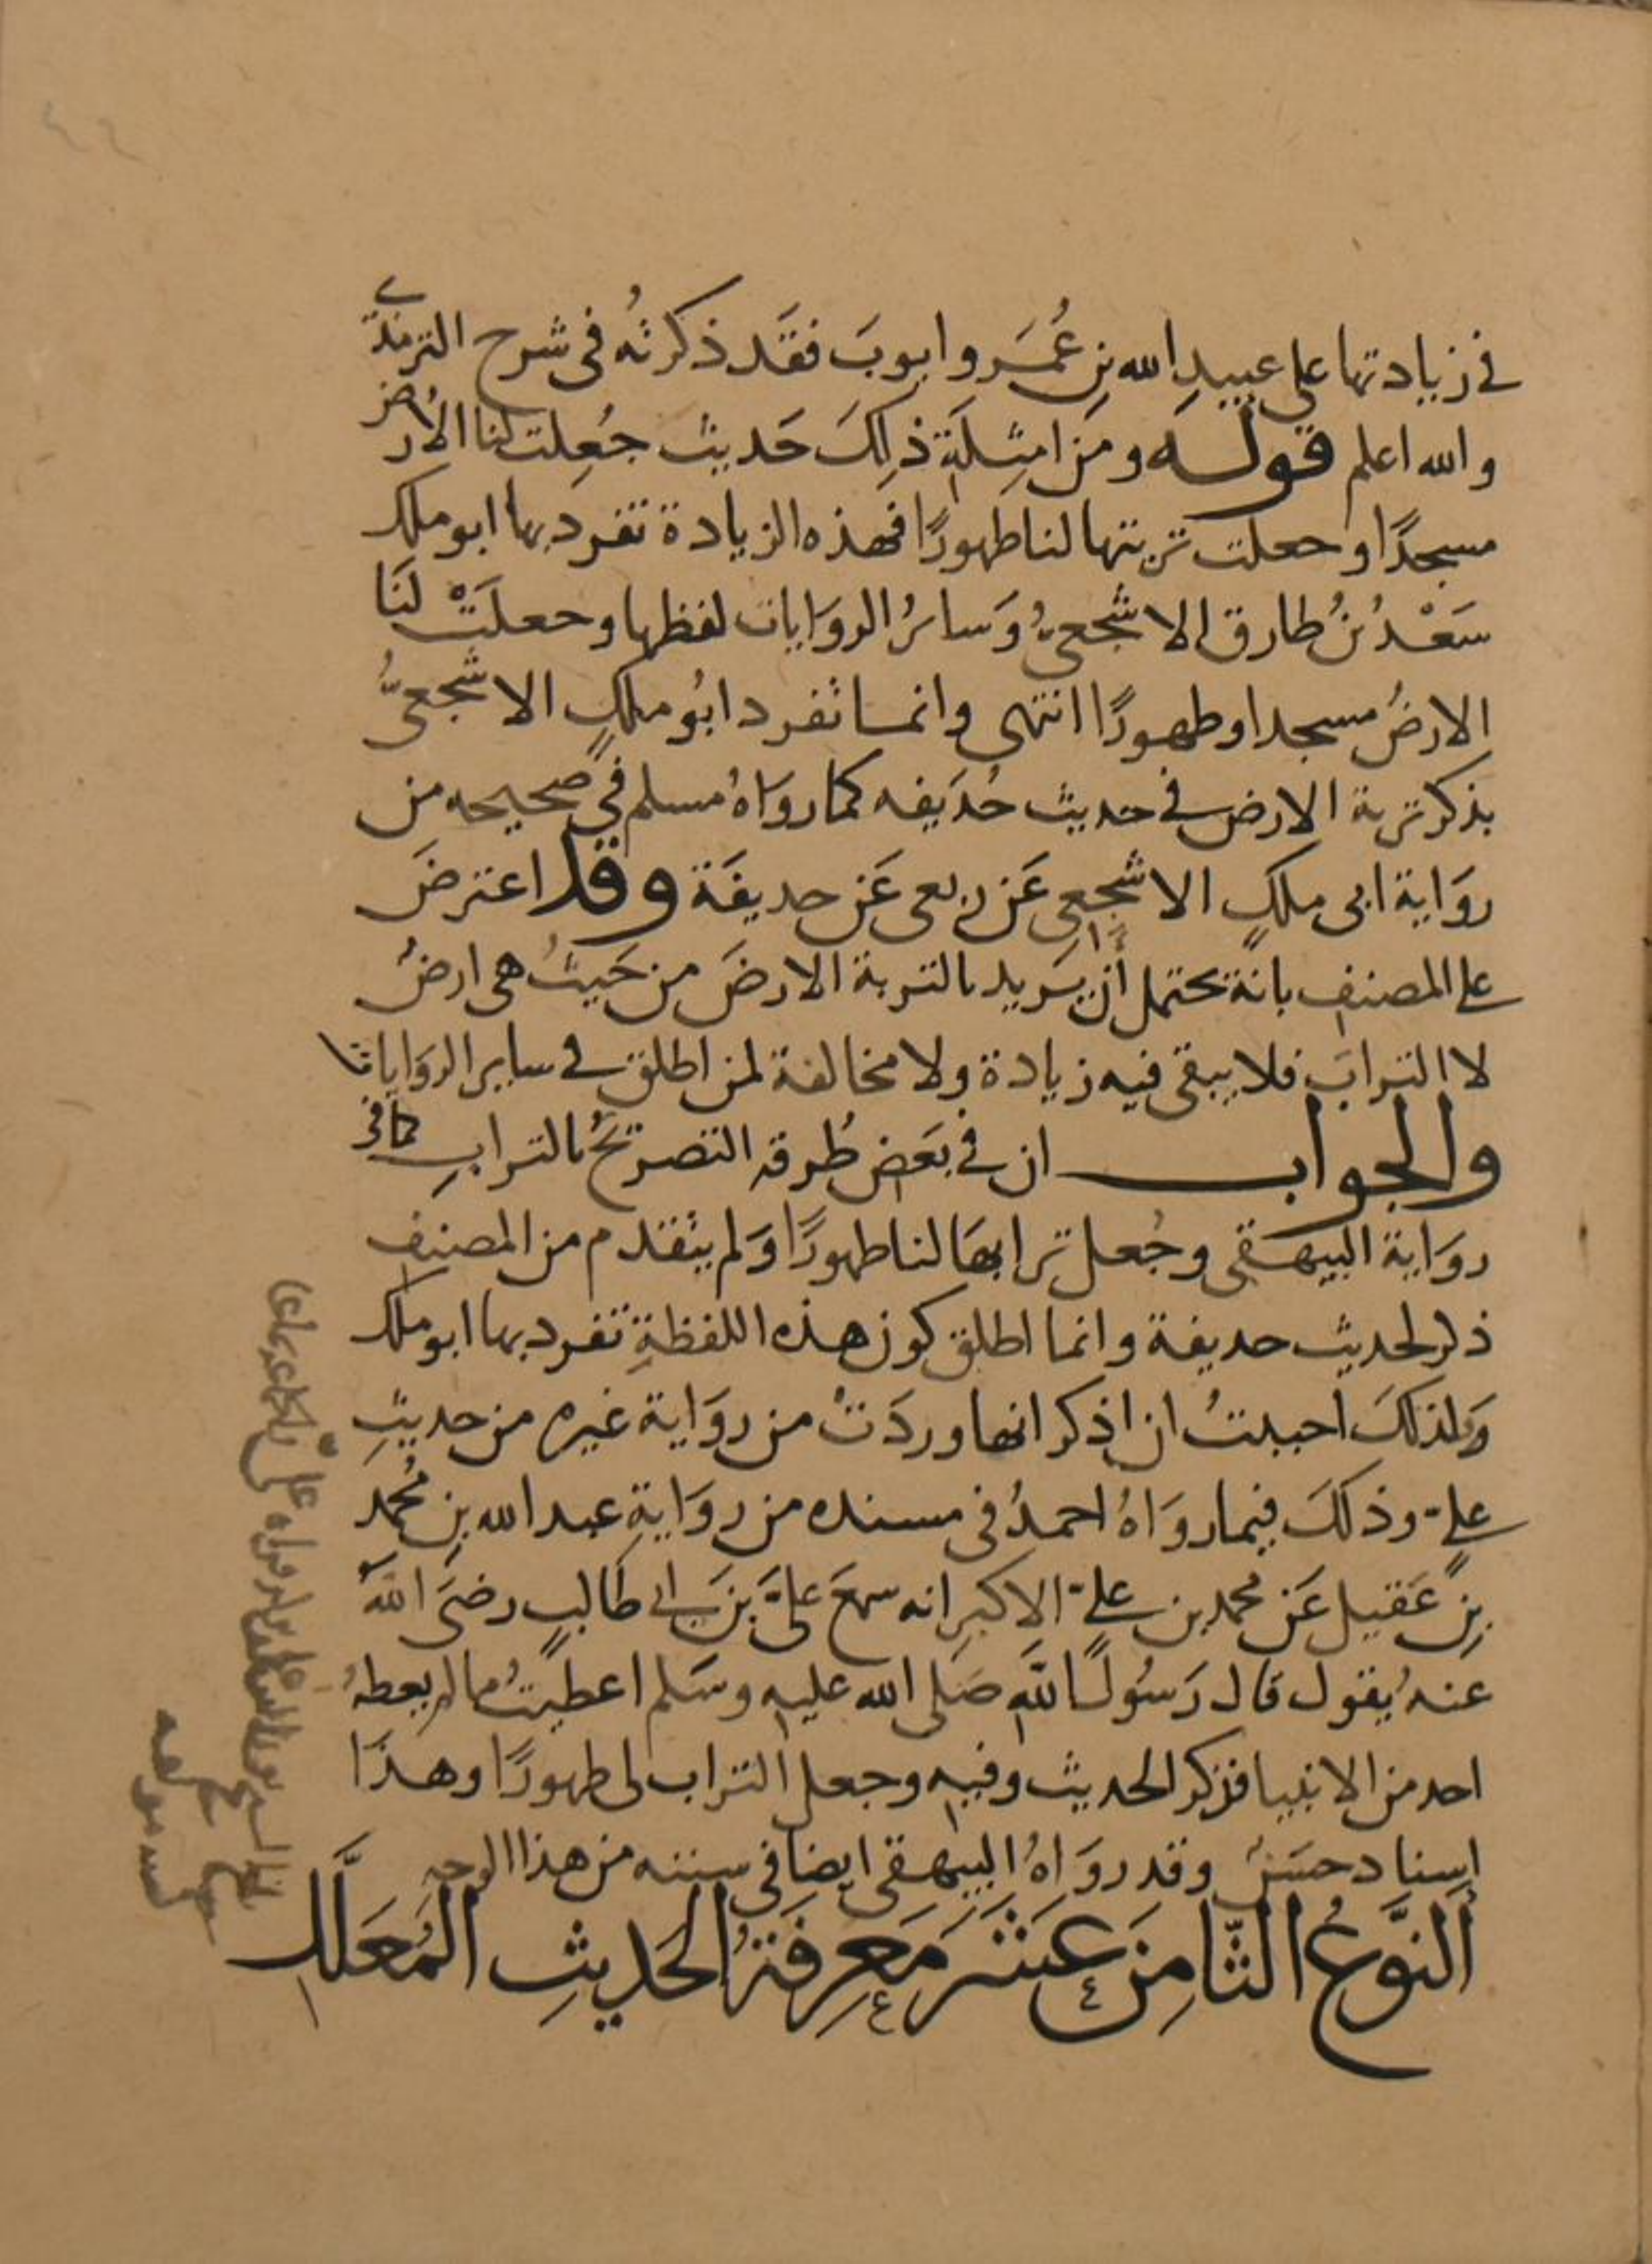 في زيادتها على عبيدِ الله بنِ عُمَر وايوبَ فقَد ذكرتُه في شرح الترمذي
والله اعلم قولـه ومن امثِلَةِ ذلِكَ حَديث جُعِلت لنا الأرض
مسجدًا وجعلت تربتها لنا طهورًا فهذه الزيادة تفرد بها ابو ملك
سَعْدُ بنُ طارق الاشجعيُّ وَسائرُ الروَايات لفظها وجعلَتْ لنَا
الارضُ مسجدا وطهورًا انتهى وانما تفرد ابُو ملكٍ الاشجعيُّ
بذكر تربة الارض في حديث حُذَيفه كما روَاهُ مسلم في صحيحه من
روَاية ابي ملكٍ الاشجعي عَن ربعي عَن حذيفَة وقد اعترضَ
على المصنف بانهُ يحتمل أن يريد بالتربة الارضَ من حَيثُ هي ارضُ
لا الترابَ فلا يبقى فيه زيادة ولا مخالفة لمن اطلق في ساير الروَايات
والجواب ان في بعَض طُرقه التصريحُ بالترابِ كما في
روَاية البيهقي وجُعل ترابهَا لنا طهورًا وَلم يتقدم من المصنف
ذكر لحديث حذيفة وانما اطلق كون هذه اللفظةِ تفرد بها ابو ملك
وَلذلكَ احببتُ ان اذكر انها وردَتْ من روَاية غيره من حديثِ
عليّ وذلكَ فيما روَاهُ احمدُ في مسنده من روَايةِ عبد الله بن مُحمد
بنِ عَقيل عَن محمد بن عليّ الاكبر انه سمعَ عليَّ بنَ ابي طالبٍ رضيَ اللهُ
عنهُ يقول قال رَسُول الله صَلى الله عليه وسَلم اعطيتُ ما لم يعطهُ
احد من الانبيا فذكر الحديث وفيه وجعل التراب لي طهورًا وهذَا
إسناد حسَنٌ وقد روَاهُ البيهقي ايضا في سننه من هذا الوجه
اَلنَّوعُ الثَّامِنَ عَشَرَ مَعرِفَةُ الحَديثِ المُعَلَّلِ